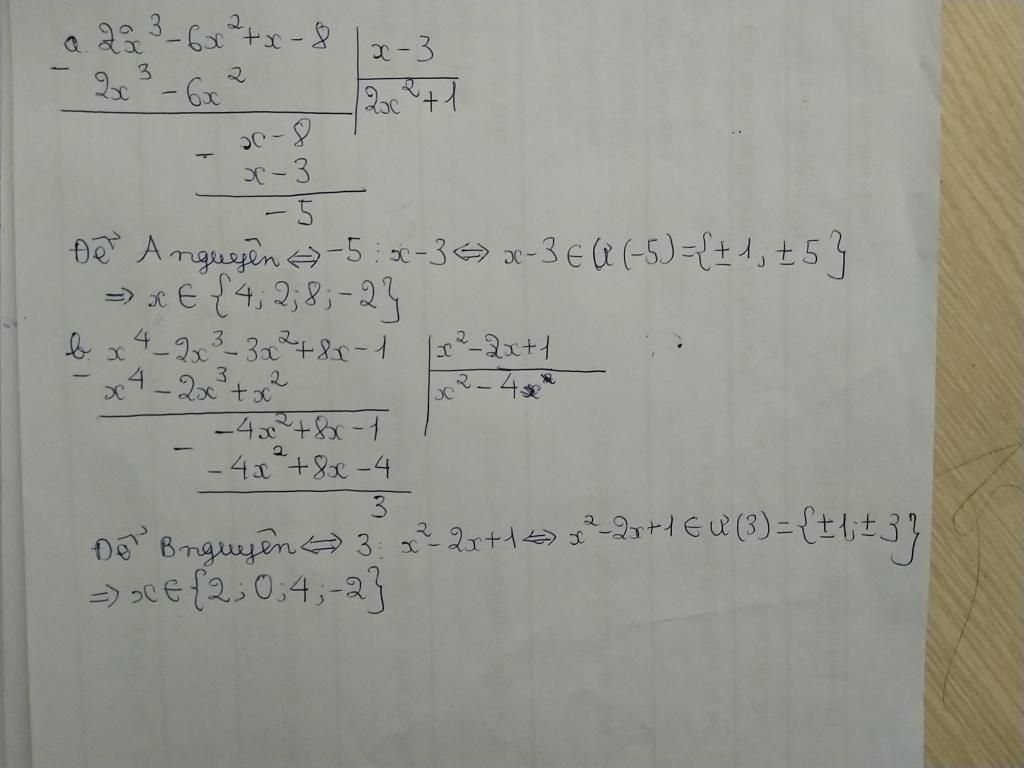 a. 2x³ - 6x² + x - 8 | x - 3
- 2x³ - 6x² | 2x² + 1
x - 8
- x - 3
- 5
Để A nguyên ⇔ -5 ⋮ x-3 ⇔ x-3 ∈ Ư(-5) = {±1; ±5}
⇒ x ∈ {4; 2; 8; -2}
b. x⁴ - 2x³ - 3x² + 8x - 1 | x² - 2x + 1
- x⁴ - 2x³ + x² | x² - 4
-4x² + 8x - 1
- -4x² + 8x - 4
3
Để B nguyên ⇔ 3 ⋮ x² - 2x + 1 ⇔ x² - 2x + 1 ∈ Ư(3) = {±1; ±3}
⇒ x ∈ {2; 0; 4; -2}